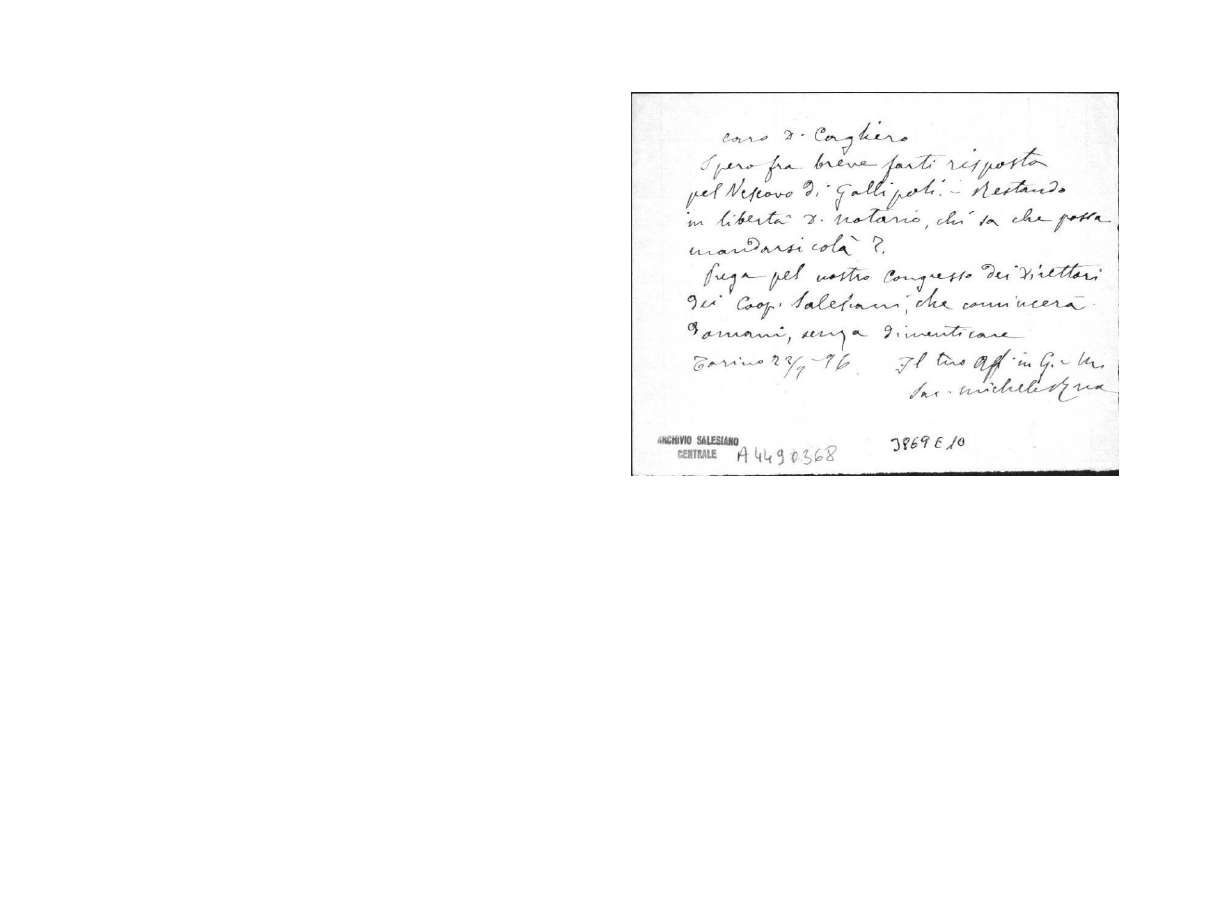 Caro D. Cagliero
Spero fra breve farti risposta
pel Vescovo di Gallipoli. - Restando
in libertà D. Notario, chi sa che possa
mandarsi colà?.
Prega pel nostro Congresso dei Direttori
dei Coop. Salesiani, che comincerà
domani, senza dimenticare
Torino 22/9-96 Il tuo Aff. in G. e M.
Sac. Michele Rua
ARCHIVIO SALESIANO
CENTRALE
A4490368
3869E10